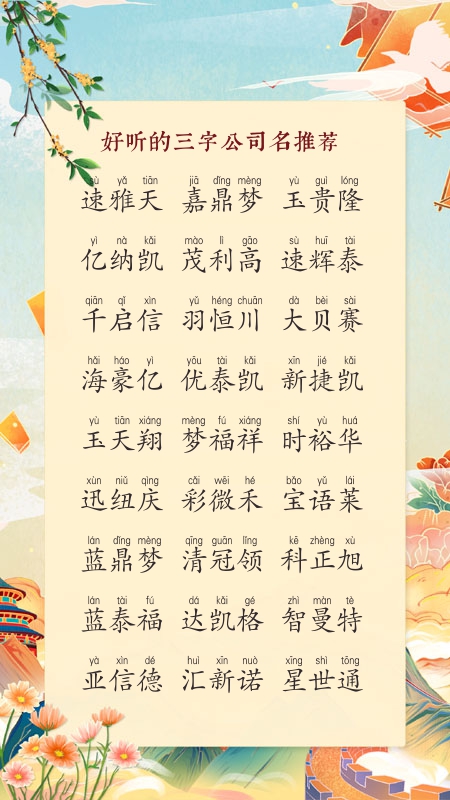 好听的三字公司名推荐
sù yǎ tiān jiā dǐng mèng yù guì lóng
速雅天 嘉鼎梦 玉贵隆
yì nà kǎi mào lì gāo sù huī tài
亿纳凯 茂利高 速辉泰
qiān qǐ xìn yǔ héng chuān dà bèi sài
千启信 羽恒川 大贝赛
hǎi háo yì yōu tài kǎi xīn jié kǎi
海豪亿 优泰凯 新捷凯
yù tiān xiáng mèng fú xiáng shí yù huá
玉天翔 梦福祥 时裕华
xùn niǔ qìng cǎi wēi hé bǎo yǔ lái
迅纽庆 彩微禾 宝语莱
lán dǐng mèng qīng guān lǐng kē zhèng xù
蓝鼎梦 清冠领 科正旭
lán tài fú dá kǎi gé zhì màn tè
蓝泰福 达凯格 智曼特
yà xìn dé huì xīn nuò xīng shì tōng
亚信德 汇新诺 星世通